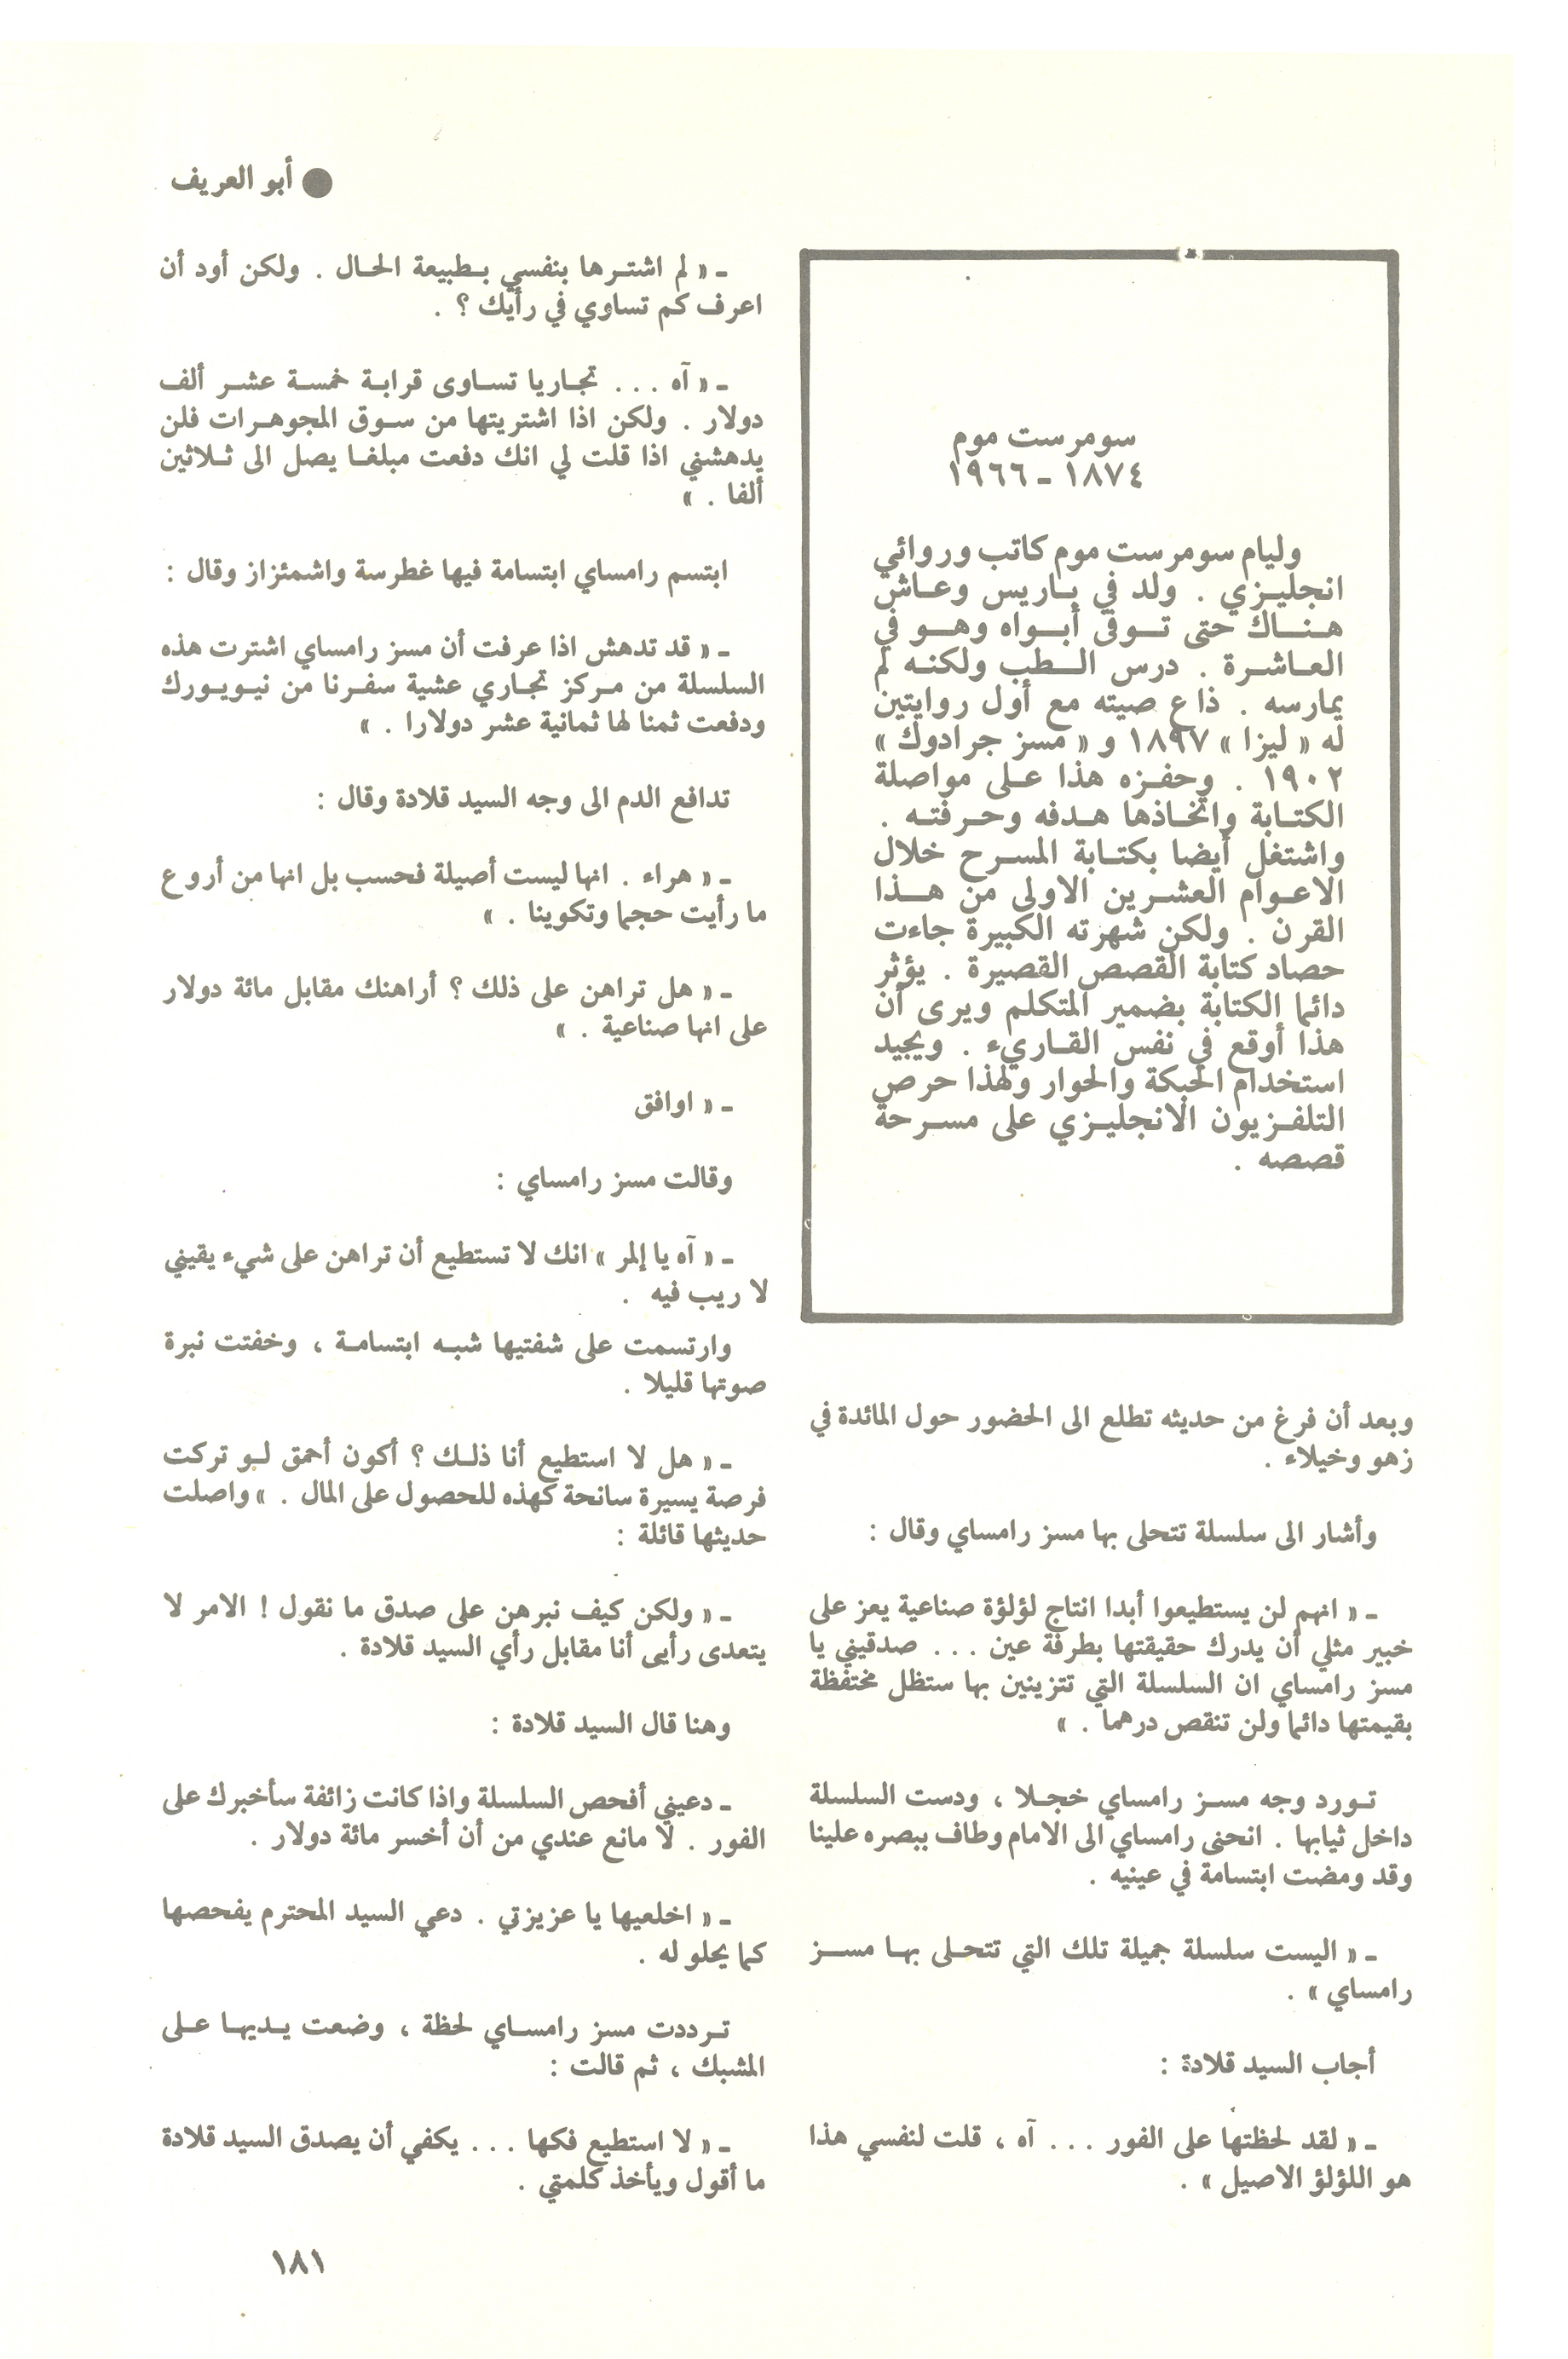 ● أبو العريف
سومرست موم
١٨٧٤ - ١٩٦٦
وليام سومرست موم كاتب وروائي
انجليزي . ولد في باريس وعاش
هناك حتى توفى أبواه وهو في
العاشرة . درس الطب ولكنه لم
يمارسه . ذاع صيته مع أول روايتين
له « ليزا » ١٨٩٧ و « مسز جرادوك »
١٩٠٢ . وحفزه هذا على مواصلة
الكتابة واتخاذها هدفه وحرفته .
واشتغل أيضا بكتابة المسرح خلال
الاعوام العشرين الاولى من هذا
القرن . ولكن شهرته الكبيرة جاءت
حصاد كتابة القصص القصيرة . يؤثر
دائما الكتابة بضمير المتكلم ويرى أن
هذا أوقع في نفس القاريء . ويجيد
استخدام الحبكة والحوار ولهذا حرص
التلفزيون الانجليزي على مسرحة
قصصه .
وبعد أن فرغ من حديثه تطلع الى الحضور حول المائدة في
زهو وخيلاء .
وأشار الى سلسلة تتحلى بها مسز رامساي وقال :
- « انهم لن يستطيعوا أبدا انتاج لؤلؤة صناعية يعز على
خبير مثلي أن يدرك حقيقتها بطرفة عين ... صدقيني يا
مسز رامساي ان السلسلة التي تتزينين بها ستظل محتفظة
بقيمتها دائما ولن تنقص درهما . »
تورد وجه مسز رامساي خجلا ، ودست السلسلة
داخل ثيابها . انحنى رامساي الى الامام وطاف ببصره علينا
وقد ومضت ابتسامة في عينيه .
- « اليست سلسلة جميلة تلك التي تتحلى بها مسز
رامساي » .
أجاب السيد قلادة :
- « لقد لحظتها على الفور ... آه ، قلت لنفسي هذا
هو اللؤلؤ الاصيل » .
- « لم اشترها بنفسي بطبيعة الحال . ولكن أود أن
اعرف كم تساوي في رأيك ؟ .
- « آه ... تجاريا تساوى قرابة خمسة عشر ألف
دولار . ولكن اذا اشتريتها من سوق المجوهرات فلن
يدهشني اذا قلت لي انك دفعت مبلغا يصل الى ثلاثين
ألفا . »
ابتسم رامساي ابتسامة فيها غطرسة واشمئزاز وقال :
- « قد تدهش اذا عرفت أن مسز رامساي اشترت هذه
السلسلة من مركز تجاري عشية سفرنا من نيويورك
ودفعت ثمنا لها ثمانية عشر دولارا . »
تدافع الدم الى وجه السيد قلادة وقال :
- « هراء . انها ليست أصيلة فحسب بل انها من أروع
ما رأيت حجما وتكوينا . »
- « هل تراهن على ذلك ؟ أراهنك مقابل مائة دولار
على انها صناعية . »
- « اوافق
وقالت مسز رامساي :
- « آه يا إلمر » انك لا تستطيع أن تراهن على شيء يقيني
لا ريب فيه .
وارتسمت على شفتيها شبه ابتسامة ، وخفتت نبرة
صوتها قليلا .
- « هل لا استطيع أنا ذلك ؟ أكون أحمق لو تركت
فرصة يسيرة سانحة كهذه للحصول على المال . » واصلت
حديثها قائلة :
- « ولكن كيف نبرهن على صدق ما نقول ! الامر لا
يتعدى رأيى أنا مقابل رأي السيد قلادة .
وهنا قال السيد قلادة :
- دعيني أفحص السلسلة واذا كانت زائفة سأخبرك على
الفور . لا مانع عندي من أن أخسر مائة دولار .
- « اخلعيها يا عزيزتي . دعي السيد المحترم يفحصها
كما يحلو له .
ترددت مسز رامساي لحظة ، وضعت يديها على
المشبك ، ثم قالت :
- « لا استطيع فكها ... يكفي أن يصدق السيد قلادة
ما أقول ويأخذ كلمتي .
١٨١